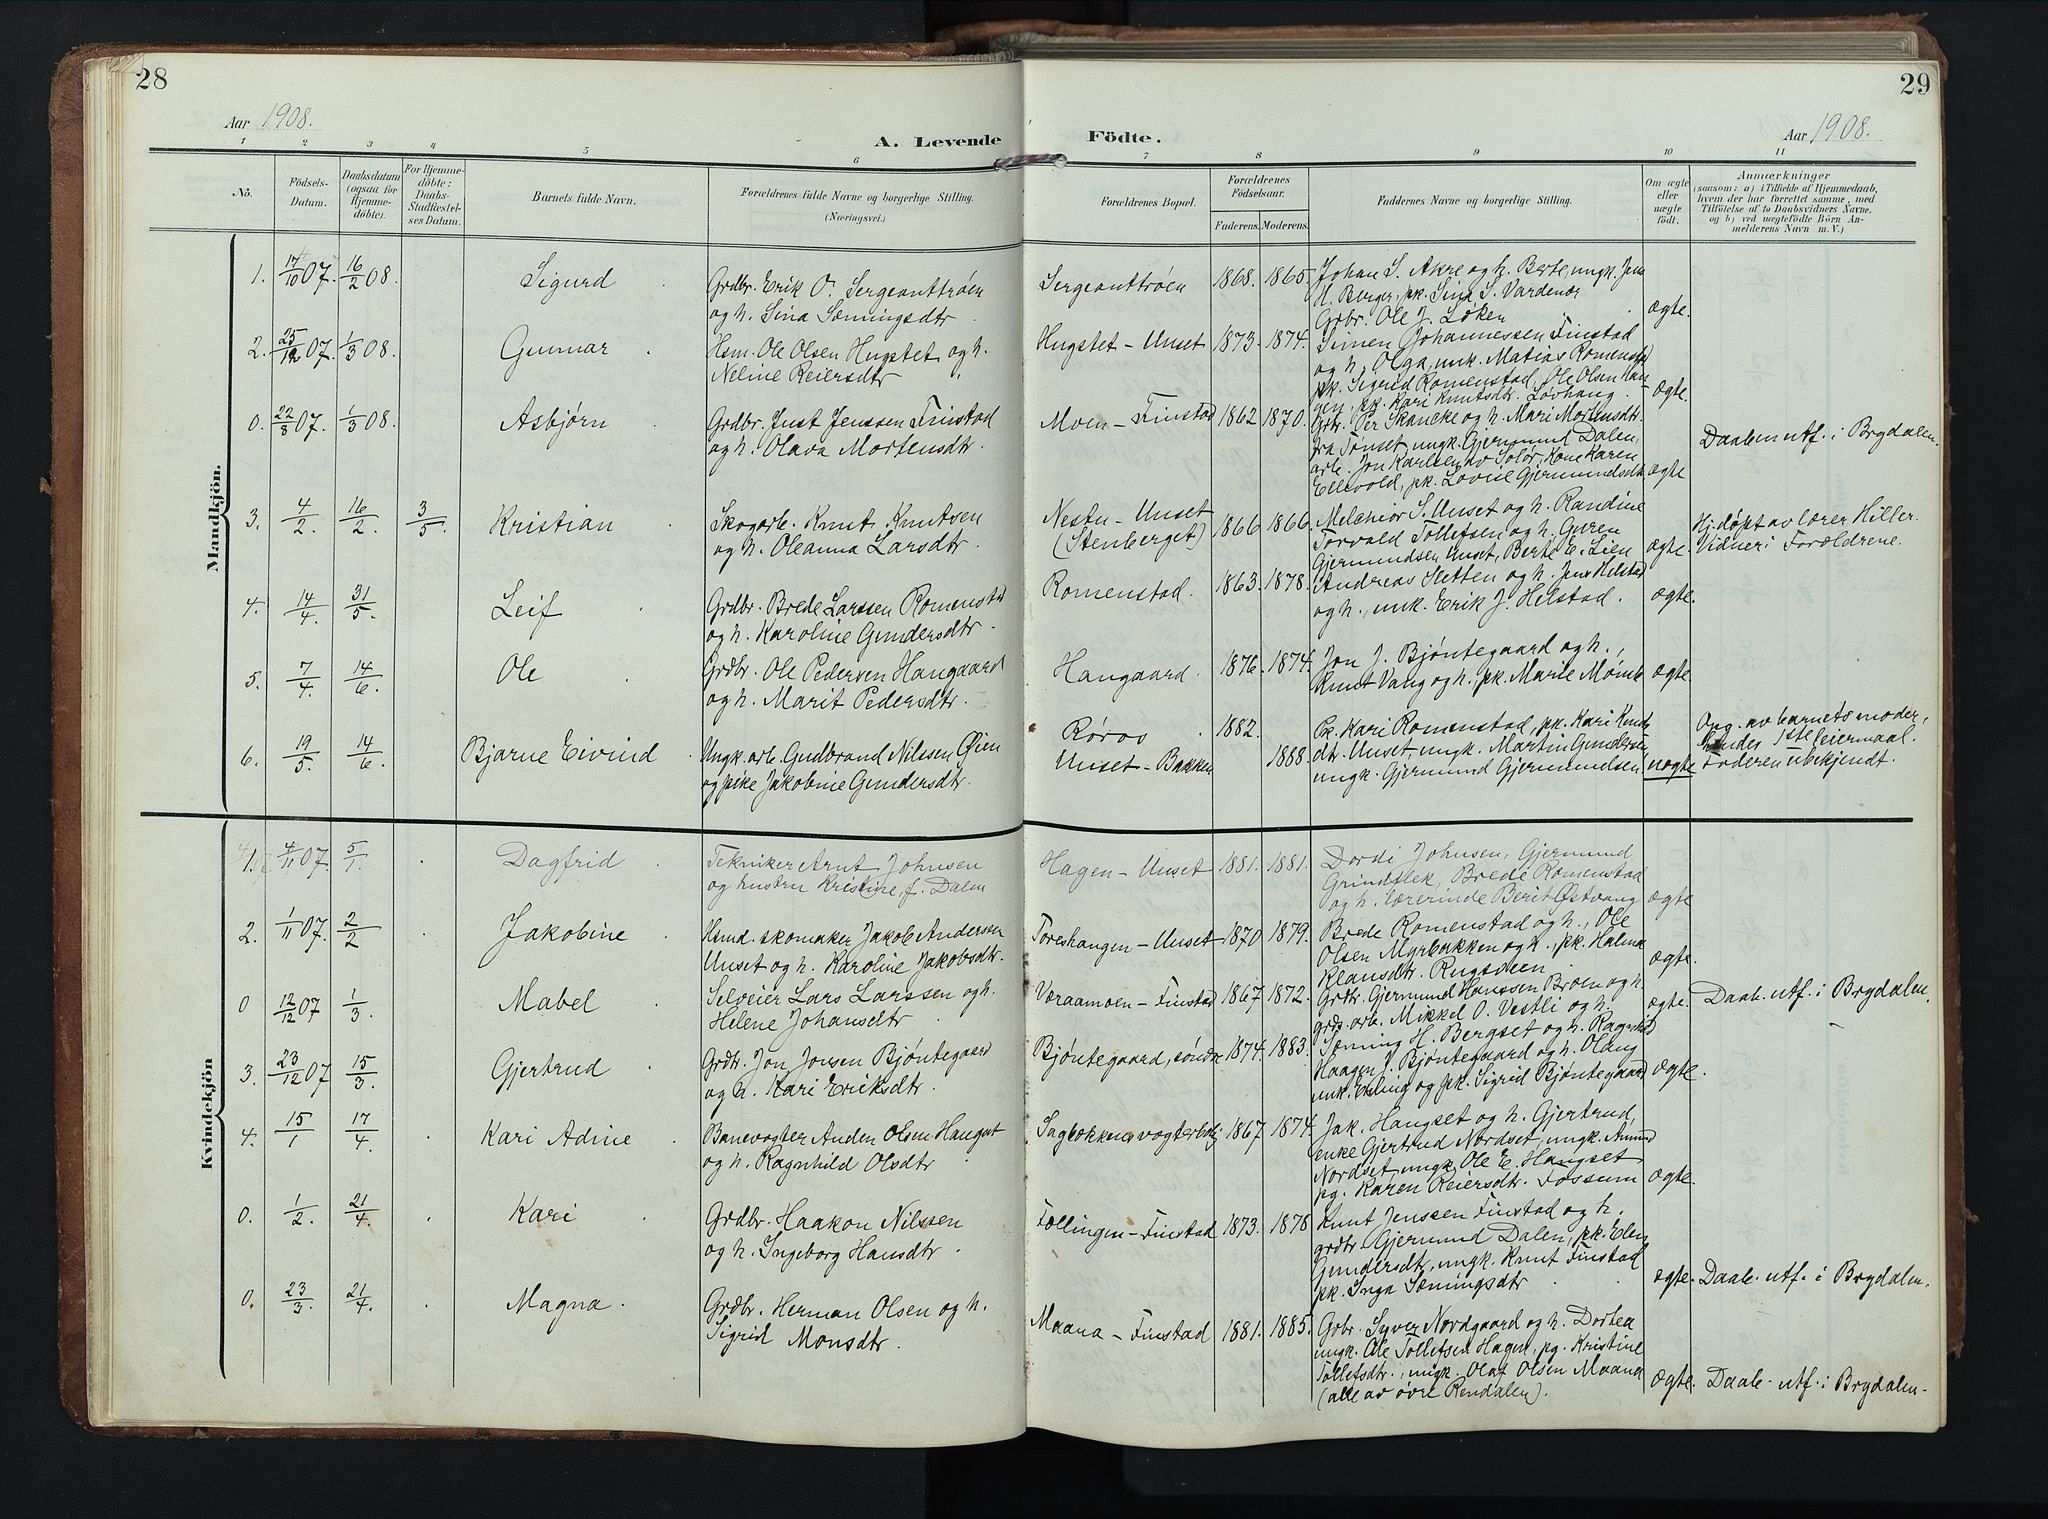 28
29
Aar 1908.
A. Levende Födte.
Aar 1908.
1 2 3 4 5 6 7 8 9 10 11
No.
Födsels-Datum.
Daabsdatum (ogsaa for Hjemme-døbte).
For Hjemme-döbte: Daabs-Stadfæstel-ses Datum.
Barnets fulde Navn.
Forældrenes fulde Navne og borgerlige Stilling.
(Næringsvei.)
Forældrenes Bopæl.
Forældrenes Födselsaar.
Faderens. Moderens.
Faddernes Navne og borgerlige Stilling.
Om ægte eller uægte födt.
Anmærkninger
(saasom: a) i Tilfælde af Hjemmedaab,
hvem der har forrettet samme, med
Tilföielse af to Daabsvidners Navne.
og b) ved uægtefödte Börn An-
melderens Navn m. V.)
Mandkjön.
1. 17/10 07. 16/2 08. Sigurd
Grdbr. Erik O. Sergeanttrøen
og h. Sina Sæmingsdtr
Sergeanttrøen 1868. 1865.
Johan S. Akre og h. Berte, ungk. Jens
H. Berger, pk. Sina S. Vardenær
Grbr. Ole J. Løken
ægte.
2. 25/12 07. 1/3 08. Gunnar
Hsm. Ole Olsen Hugstet og h.
Neline Reiersdtr
Hugstet - Unset 1873. 1874.
Simen Johannessen Finstad
og h. Olga, unk. Matias Romenstad
pk. Sigrid Romenstad, Ole Olsen Hau-
gen, pk. Kari Knutsdtr. Løvhaug.
ægte.
0. 22/8 07. 1/3 08. Asbjørn
Grdbr. Just Jenssen Finstad
og h. Olava Mortensdtr.
Moen - Finstad 1862 1870.
Grbr. Per Skancke og h. Mari Mortensdtr.
fra Tønset, ungk. Gjermund Dalen,
arb. Jon Karlsen av Solør, Kone Karen
Ellevold, pk. Lovise Gjermundsdtr.
ægte
Daaben utf. i Brydalen.
3. 4/2. 16/2. 3/5 Kristian
Skogarb. Knut Knutsen
og h. Oleanna Larsdtr.
Nestu - Unset
(Stenberget) 1866 1866.
Melchior S. Unset og h. Randine
Torvald Tollefsen og h. Guren
Gjermundsen Unset, Berte E. Lien
ægte.
Hj. døpt av lærer Hiller.
Vidner: Forældrene.
4. 14/4. 31/5. Leif
Grdbr. Brede Larssen Romenstad
og h. Karoline Gundersdtr.
Romenstad. 1863. 1878.
Andreas Sletten og h. Jens Helstad
og h., unk. Erik J. Helstad.
ægte.
5. 7/4. 14/6. Ole
Grdbr. Ole Pedersen Hangaard
og h. Marit Pedersdtr.
Hangaard. 1876. 1874.
Jon J. Bjøntegaard og h.,
Knut Vang og h. pk. Marie Mømb
ægte
6. 19/5. 14/6. Bjarne Eivind
Ungk. arb. Gudbrand Nilssen Øien
og pike Jakobine Gundersdtr.
Røros 1882.
Unset - Bakken 1888.
Pk. Kari Romenstad, pk. Kari Knuts-
dtr. Unset, ungk. Martin Gundersen
ungk. Gjermund Gjermundsen.
uægte
Opg. av barnets moder,
hendes 1ste leiermaal.
Faderen ubekjendt.
Kvindekjön
1. 4/11 07. 5/1. Dagfrid
Tekniker Arnt Johnsen
og hustru Kristine, f. Dalen
Hagen - Unset 1881. 1881.
Dordi Johnsen, Gjermund
Grindflek, Brede Romenstad
og h. lærerinde Berit Østvang
ægte
2. 1/11 07. 2/2 Jakobine
Hsmd. skomaker Jakob Andersen
Unset og h. Karoline Jakobsdtr.
Toreshaugen - Unset 1870 1879.
Brede Romenstad og h., Ole
Olsen Myrbakken og h. pk. Halma
Klausdtr. Rugsveen.
ægte.
0 12/12 07 1/3. Mabel
Selveier Lars Larssen og h.
Helene Johansdtr
Væraamoen - Finstad 1867 1872.
Grdbr. Gjermund Hanssen Broen og h.
grds. arb. Mikkel O. Vestli og h.
ægte.
Daab. utf. i Brydalen.
3. 23/12 07 15/3. Gjertrud
Grdbr. Jon Jonsen Bjøntegaard
og h. Kari Eriksdtr.
Bjøntegaard, søndre 1874. 1883.
Sæming H. Bergset og h. Ragnhild
Haagen J. Bjøntegaard og h. Olaug
unk. Erling og pk. Sigrid Bjøntegaard
ægte.
4. 15/1 17/4. Kari Adine
Banevogter Anden Olsen Hangset
og h. Ragnhild Olsdtr
Sagbakken vogterbolig 1867 1874.
Jak. Hangset og h. Gjertrud,
enke Gjertrud Nordset, ungk. Amund
Nordset, ungk. Ole E. Hangset
pg. Karen Reiersdtr. Fossum
ægte.
0. 1/2. 21/4. Kari
Grdbr. Haakon Nilssen
og h. Ingeborg Hansdtr.
Føllingen - Finstad 1873. 1878
Knut Jenssen Finstad og h.
grdbr. Gjermund Dalen, pk. Elen
Gundersdtr, ungk. Knut Finstad
pk. Inga Sæmingsdtr
ægte.
Daab. utf. i Brydalen.
0. 23/3. 21/4. Magna.
Grdbr. Herman Olsen og h.
Sigrid Monsdtr.
Maana - Finstad 1881. 1885.
Gbr. Syver Nordgaard og h. Dortea
ungk. Ole Tollefsen Hagen, pg. Kristine
Tollefsdtr., ungk. Olaf Olsen Maana
(alle av øvre Rendalen).
ægte.
Daab. utf. i Brydalen.